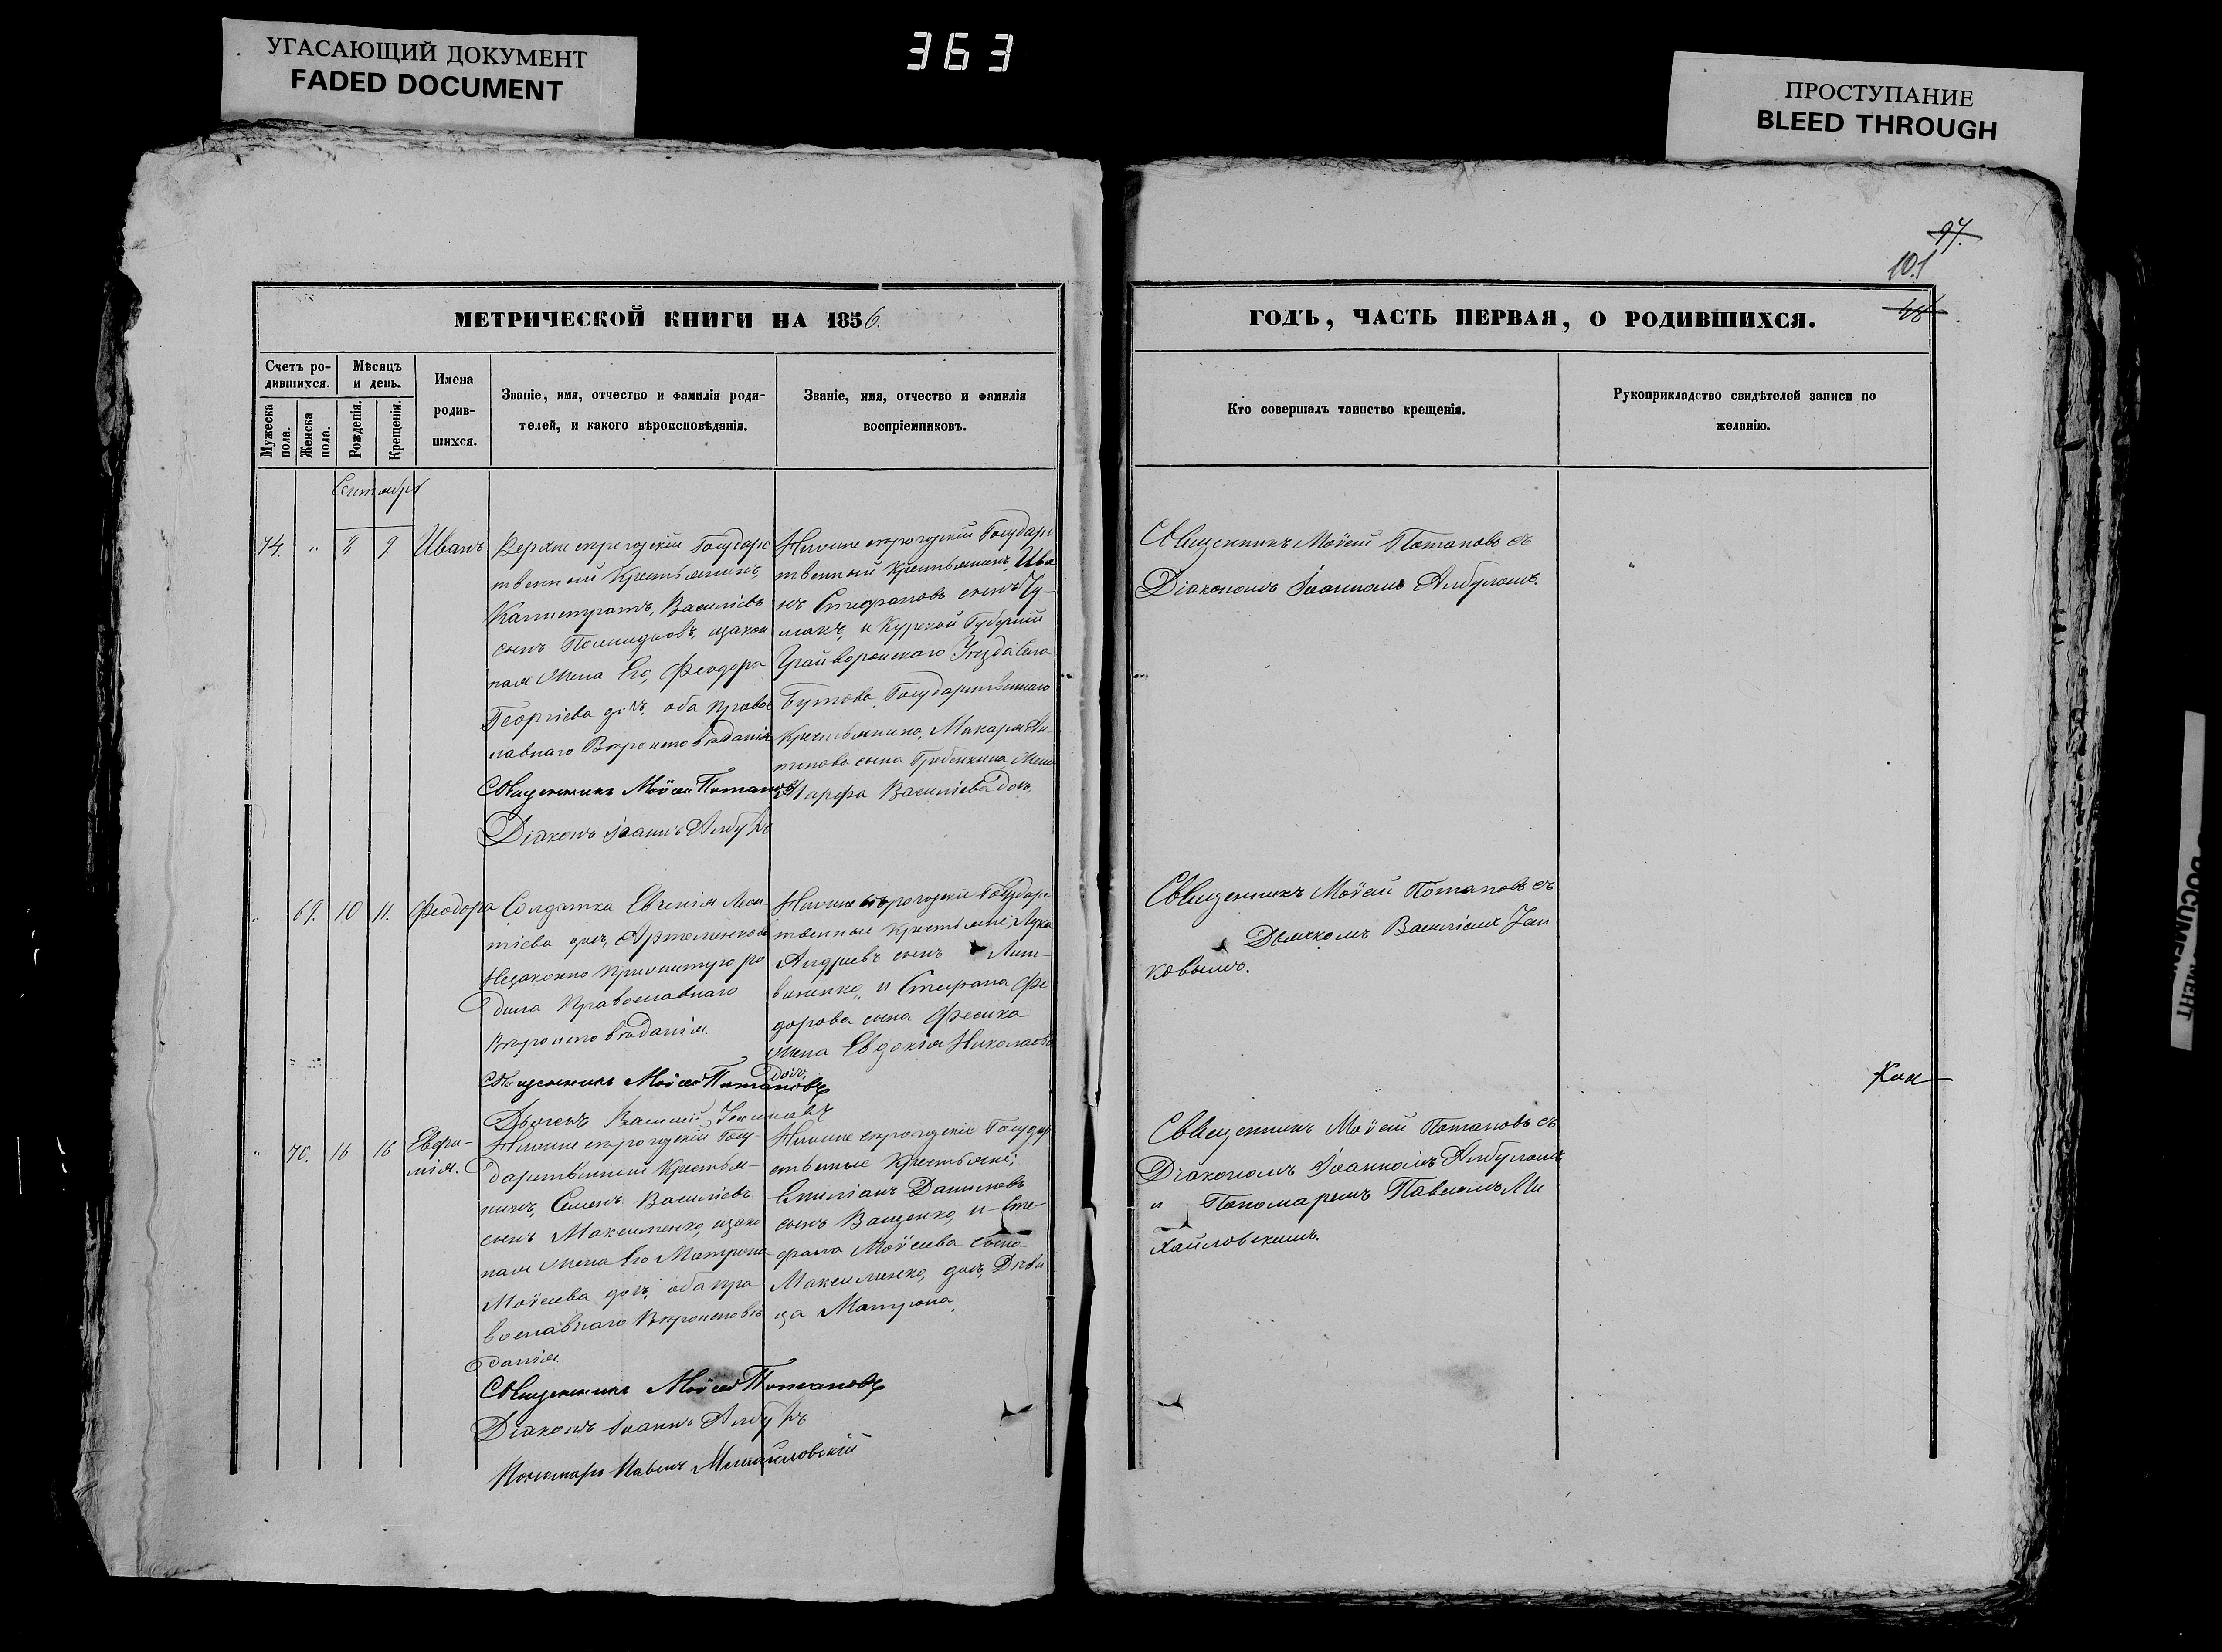 УГАСАЮЩИЙ ДОКУМЕНТ
FADED DOCUMENT
363
ПРОСТУПАНИЕ
BLEED THROUGH
97.
101
МЕТРИЧЕСКОЙ КНИГИ НА 1856.
ГОДЪ, ЧАСТЬ ПЕРВАЯ, О РОДИВШИХСЯ.
Счетъ ро-
дившихся.
Мужеска
пола.
Женска
пола.
Мѣсяцъ
и день.
Рожденія.
Крещенія.
Имена
родив-
шихся.
Званіе, имя, отчество и фамилія роди-
телей, и какого вѣроисповѣданія.
Званіе, имя, отчество и фамилія
воспріемниковъ.
Кто совершалъ таинство крещенія.
Рукоприкладство свидѣтелей записи по
желанію.
Сентябрь
74. „ 9. Иванъ
Государс
твенный Крестьянинъ,
Калистратъ, Василіевъ
сынъ закон
ная жена Его, Феодора
Георгіева доч. оба право
славнаго Вѣроисповѣданія
Священникъ Моѵсей Потаповъ
Діаконъ Іоаннъ
Государс
твенный Крестьянинъ, Ива
нъ Стефановъ сынъ Чу-
макъ, и Курской Губерніи
Грайворонскаго Уѣзда Села
Бутова, Государственнаго
Крестьянина, Макара Ан
типова сына Гребенкина жена
Марфа Василіева дочь,
Священникъ Моѵсей Потаповъ съ
Діакономъ Іоанномъ
„ 69. 10 11. Феодора
Солдатка Евгенія Леон-
тіева доч, Артеменкова
Незаконно прижитую ро
дила Православнаго
Вѣроисповѣданія.
Священникъ Моѵсей Потаповъ
Дьячекъ Василій
Государс
твенные Крестьяне, Лука
Андреевъ сынъ Лит-
виненко, и Стефана Фе
дорова сына Фесика
жена Евдокія Николаева
доч.
Священникъ Моѵсей Потаповъ съ
Дьячкомъ Василіемъ
ковымъ.
„ 70. 16 16 Евфи-
мія.
Госу-
дарственный Крестья-
нинъ, Семенъ Василіевъ
сынъ Максименко, зако
ная жена Его Матрона
Моѵсеева доч, оба пра
вославнаго Вѣроисповѣ
данія.
Священникъ Моѵсей Потаповъ
Діаконъ Іоаннъ
Пономарь Павелъ Михайловскій
Государ
ственные Крестьяне,
Емиліанъ Даниловъ
сынъ Ващенко, и Сте-
фана Моѵсеева сына
Максименко, доч, Дѣви
ца Матрона,
Священникъ Моѵсей Потаповъ съ
Діакономъ Іоанномъ
и Пономаремъ Павломъ Ми
хайловскимъ.
DOCUMENT